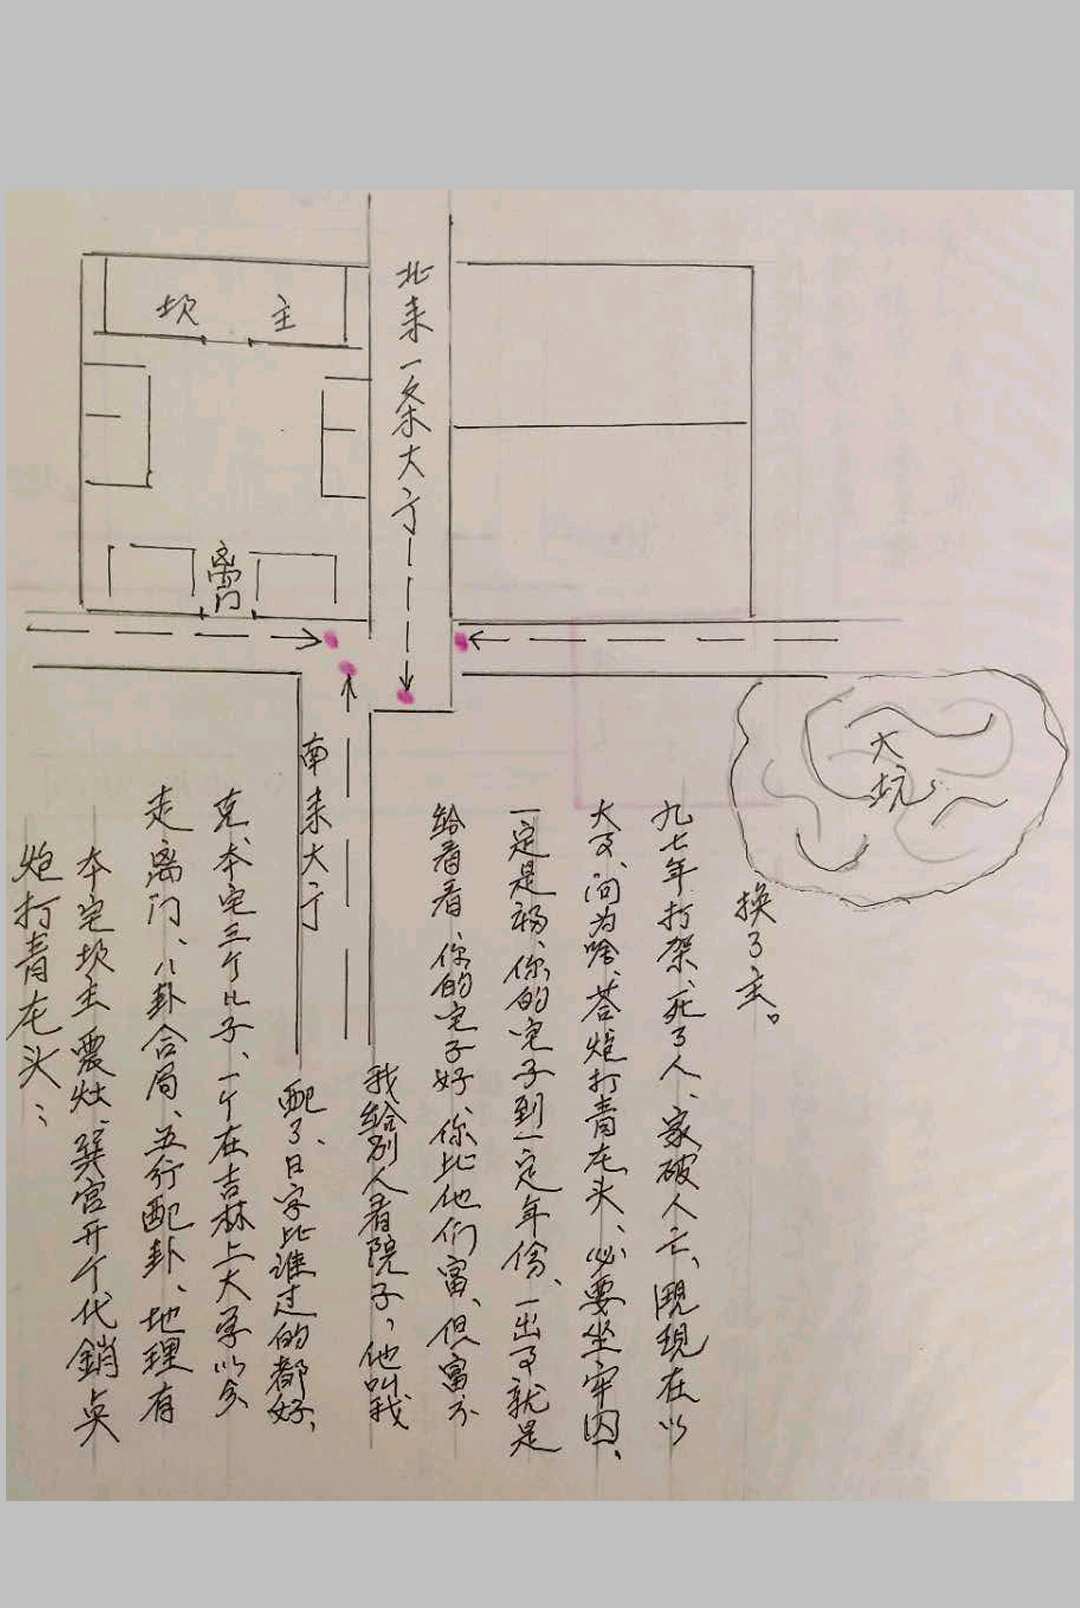 坎 主
北来一条大亍
离门
南来大亍
大坑
炮打青龙头:
本宅坎主震灶、巽宫开个代銷点
走离门、八卦合局、五行配卦、地理有
克、本宅三个儿子、一个在吉林上大学以分
配了、日字比谁过的都好、
我给别人看院子,他叫我
给看看 你的宅子好、你比他们富、但富不
一定是福、你的宅子到一定年份、一出事就是
大事、问为啥、答炮打青龙头、必要坐牢囚、
九七年打架、死了人、家破人亡、现在以
换了主。